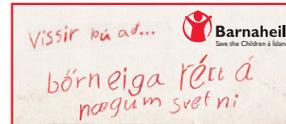 Vissir þú að...
Barnaheill
Save the Children á Íslandi
börn eiga rétt á
nægum svefni